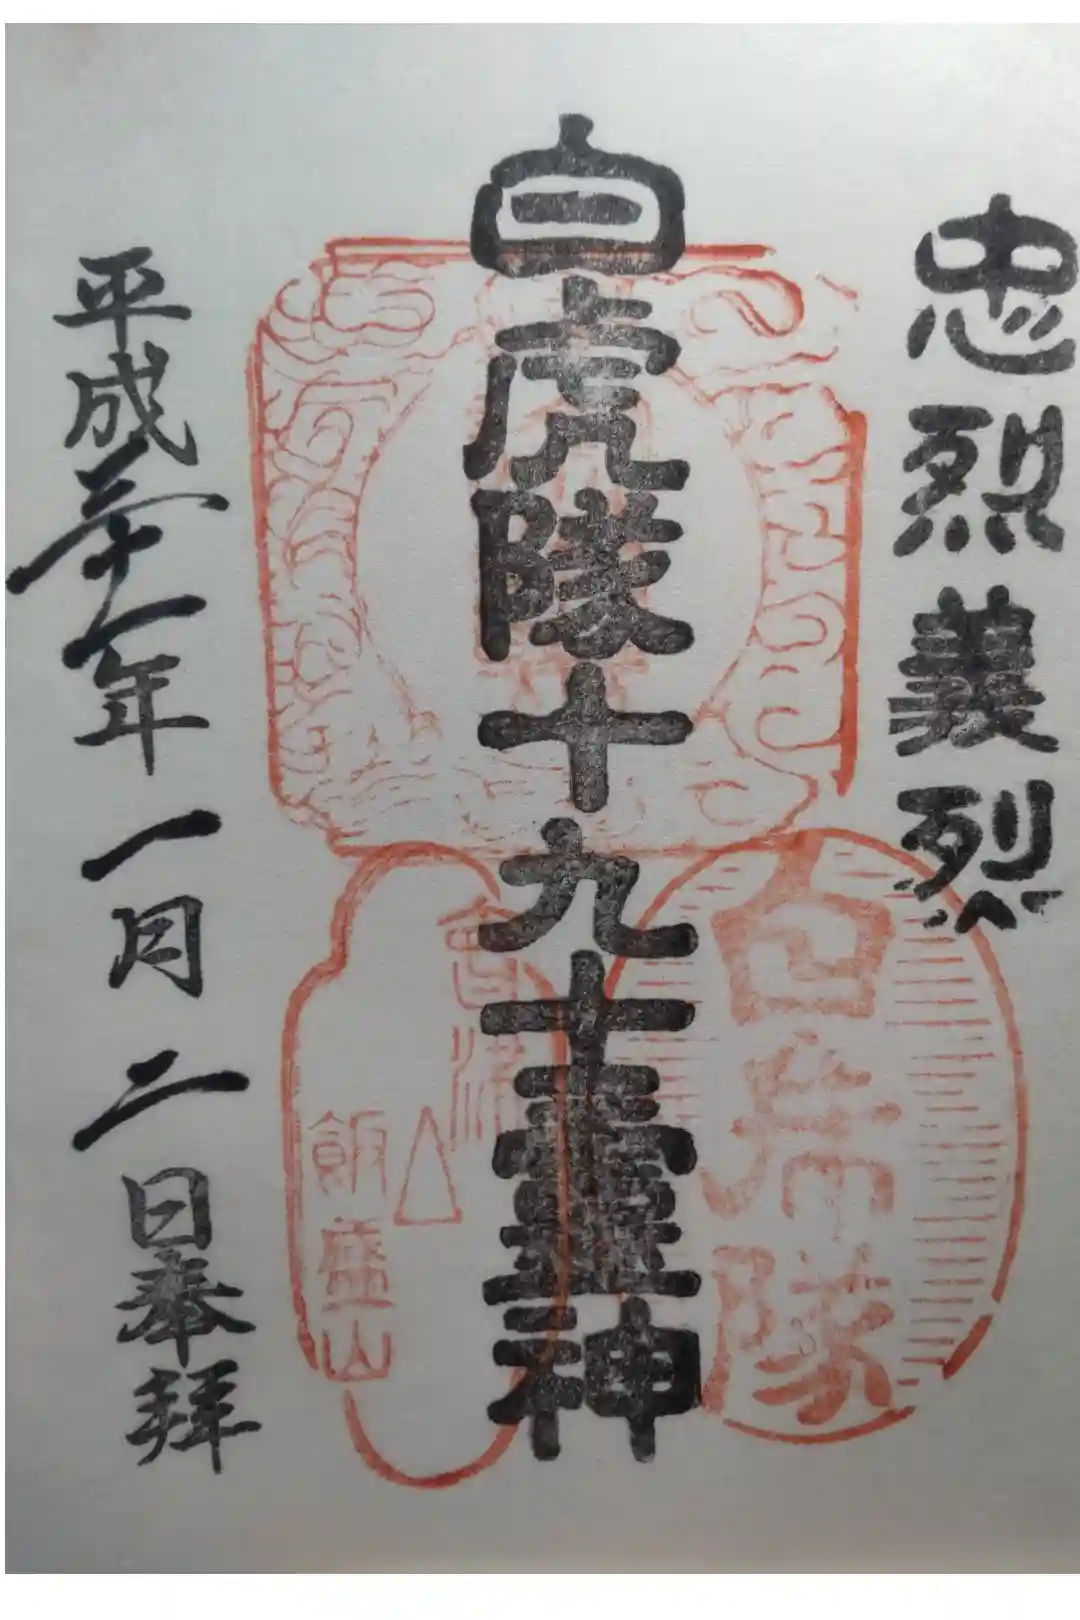 忠烈義烈
白虎隊十九士靈神
平成三十一年一月二日奉拝
白虎隊
會津
飯盛山